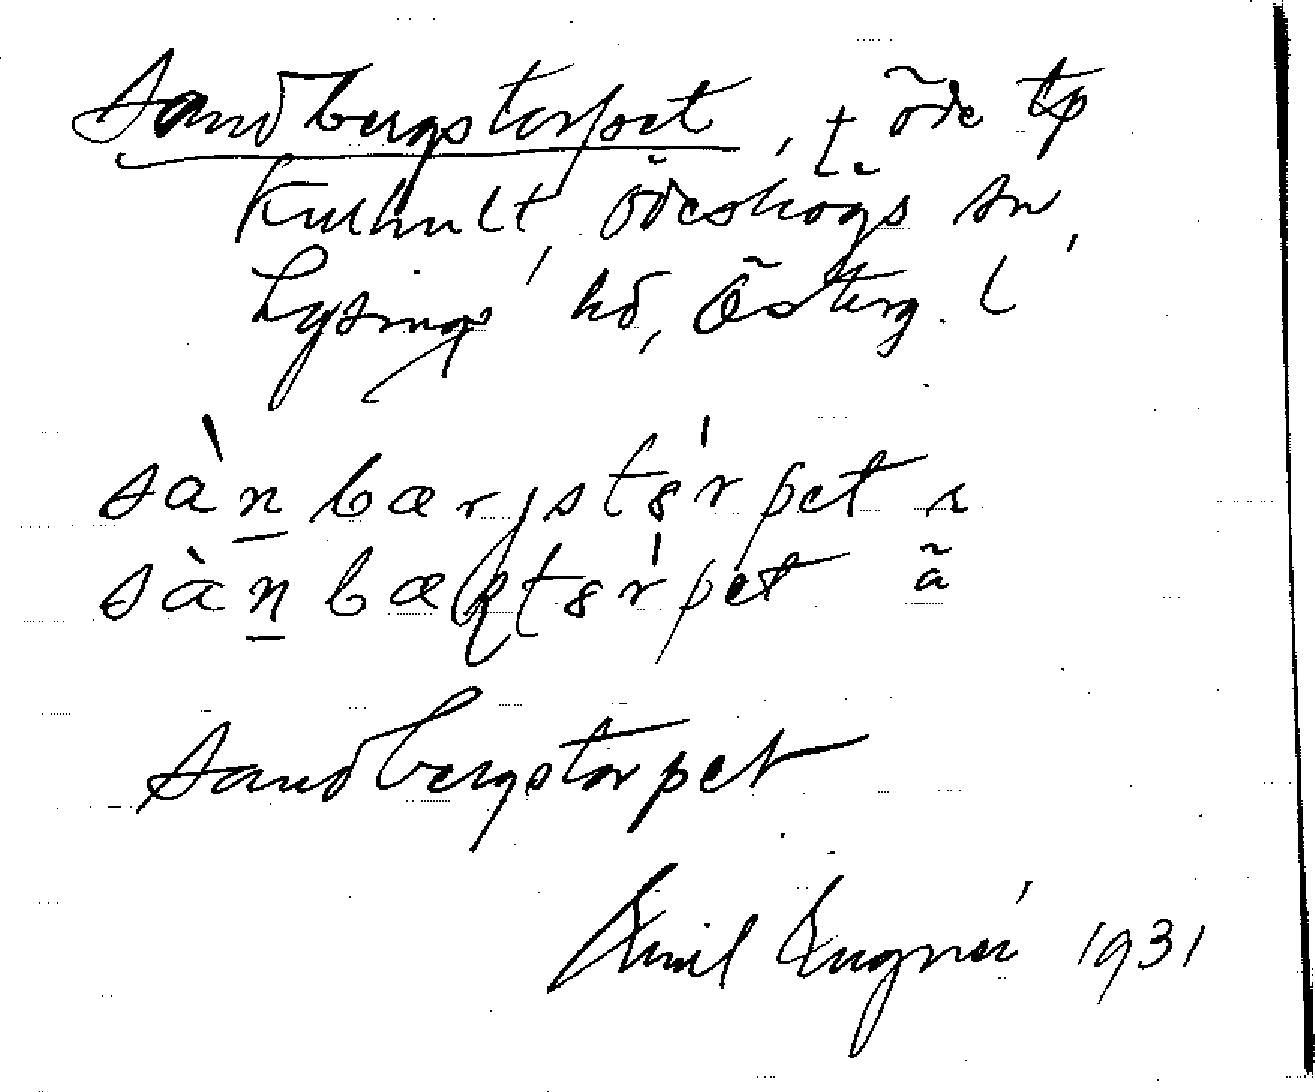 Sandbergstorpet, † öde tp
Kulhult, Ödeshögs sn,
Lysings hd, Österg. l
sànbærjstórpet
sànbæqstórpet ã
Sandbergstorpet
Emil 1931